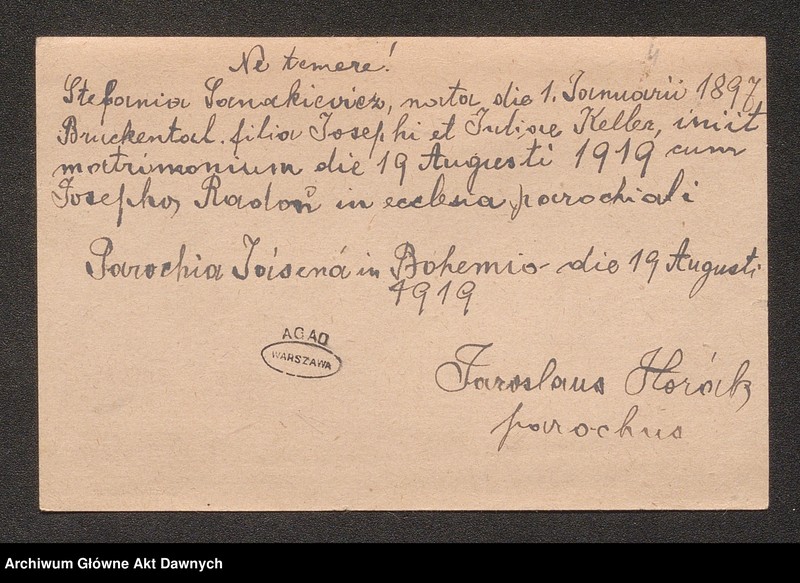 Ne temere!
Stefania Sanakievicz, nata die 1. Januarii 1897
Bruckental. filia Josephi et Juliae Keller, iniit
matrimonium die 19 Augusti 1919 cum
Josepho Radoň in ecclesia parochiali
Parochia Jásená in Bohemia die 19 Augusti
1919
AGAD
WARSZAWA
Jaroslaus Horák
parochus
Archiwum Główne Akt Dawnych